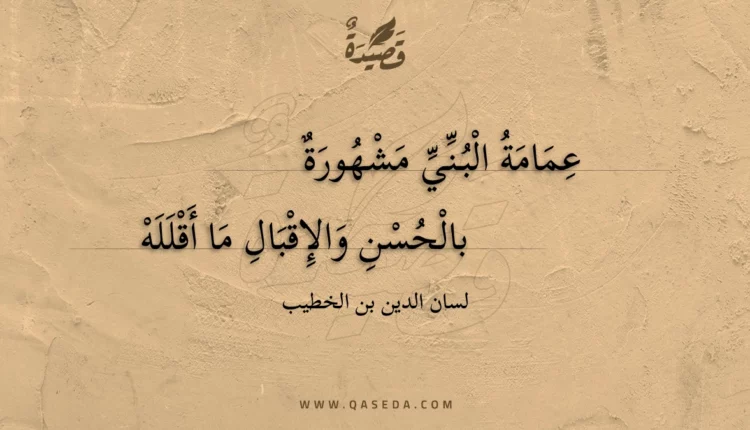 قَصِيدَةٌ
عِمَامَةُ الْبُنِّيِّ مَشْهُورَةٌ
بالْحُسْنِ وَالإِقْبَالِ مَا أَقْلَلَهْ
لسان الدين بن الخطيب
WWW.QASEDA.COM